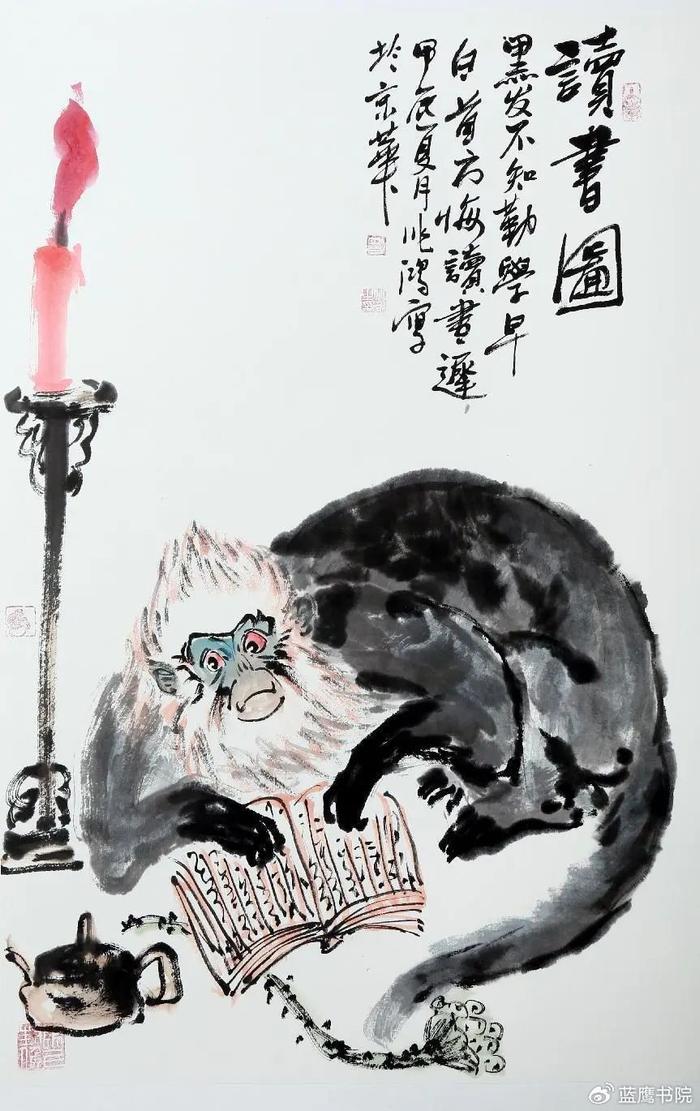 讀書圖
黑发不知勤學早
白首方悔讀書遲
甲辰夏月兆鴻寫
於京華
蓝鹰书院